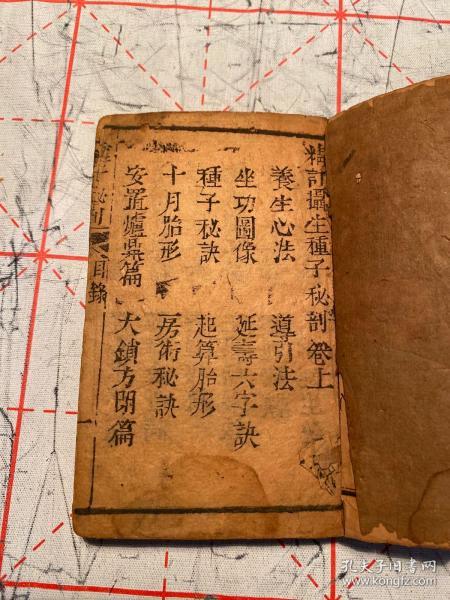 精訂攝生種子秘剖卷上
養生心法 導引法
坐功圖像 延壽六字訣
種子秘訣 起算胎形
十月胎形 房術秘訣
安置爐鼎篇 大鎖方閉篇
種子秘剖 目錄 一
孔夫子旧书网
www.kongfz.com